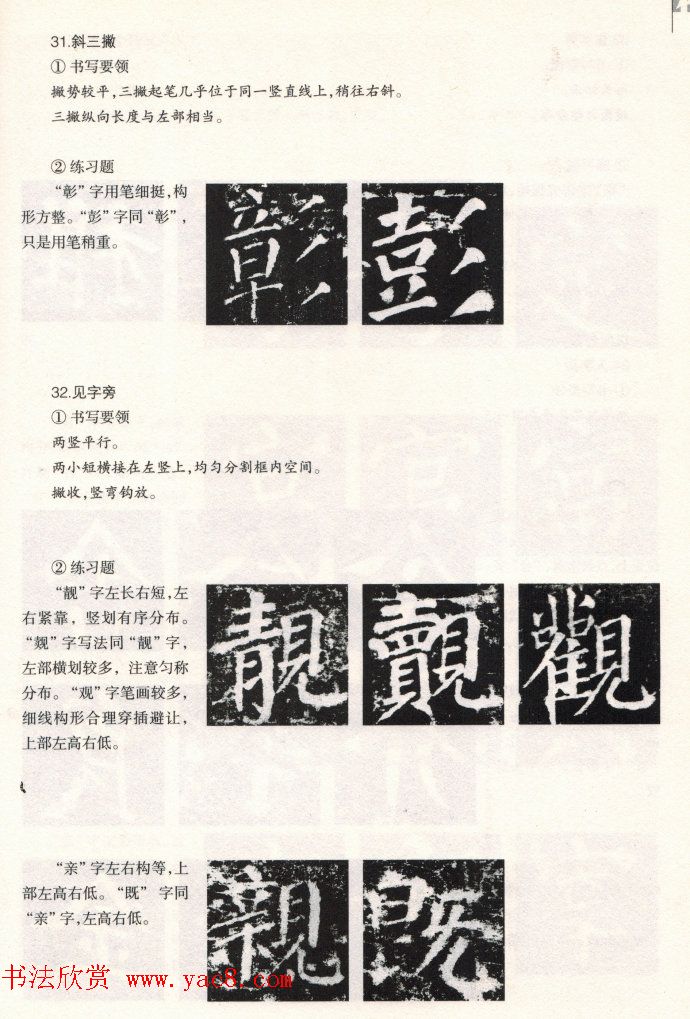 31.斜三撇
① 书写要领
撇势较平,三撇起笔几乎位于同一竖直线上,稍往右斜。
三撇纵向长度与左部相当。
② 练习题
“彰”字用笔细挺,构
形方整。“彭”字同“彰”,
只是用笔稍重。
彰 彭
32.见字旁
① 书写要领
两竖平行。
两小短横接在左竖上,均匀分割框内空间。
撇收,竖弯钩放。
② 练习题
“靓”字左长右短,左
右紧靠,竖划有序分布。
“觌”字写法同“靓”字,
左部横划较多,注意匀称
分布。“观”字笔画较多,
细线构形合理穿插避让,
上部左高右低。
靚 覿 觀
“亲”字左右构等,上
部左高右低。“既”字同
“亲”字,左高右低。
親 既
书法欣赏 www.yac8.com